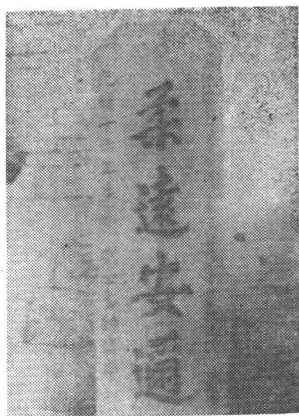 柔遠安邇